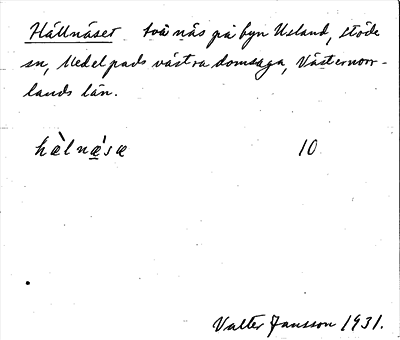 Hällnäset två näs på byn Usland, Stöde
sn, Medelpads västra domsaga, Västernorr-
lands län.
hæ̀lnæ̀sæ 10
Valter Jansson 1931.